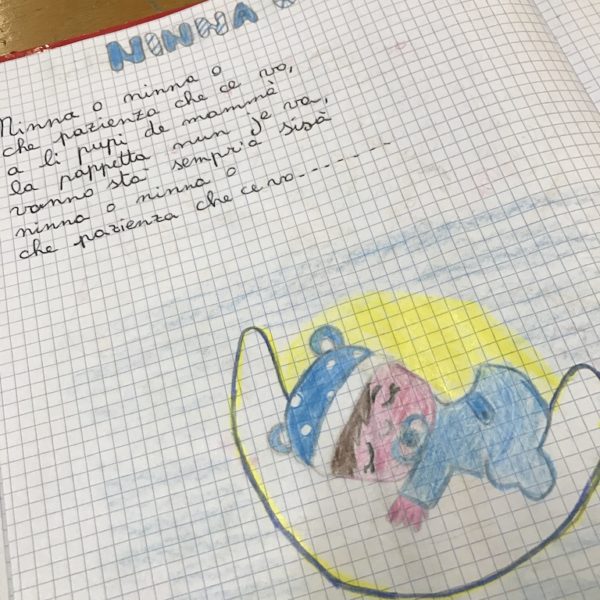 NINNA
Ninna o ninna o
che pazienza che ce vo,
a li pupi de mammà
la pappetta nun je va,
vonno sta sempr'a sisà
ninna o ninna o
che pazienza che ce vo-------